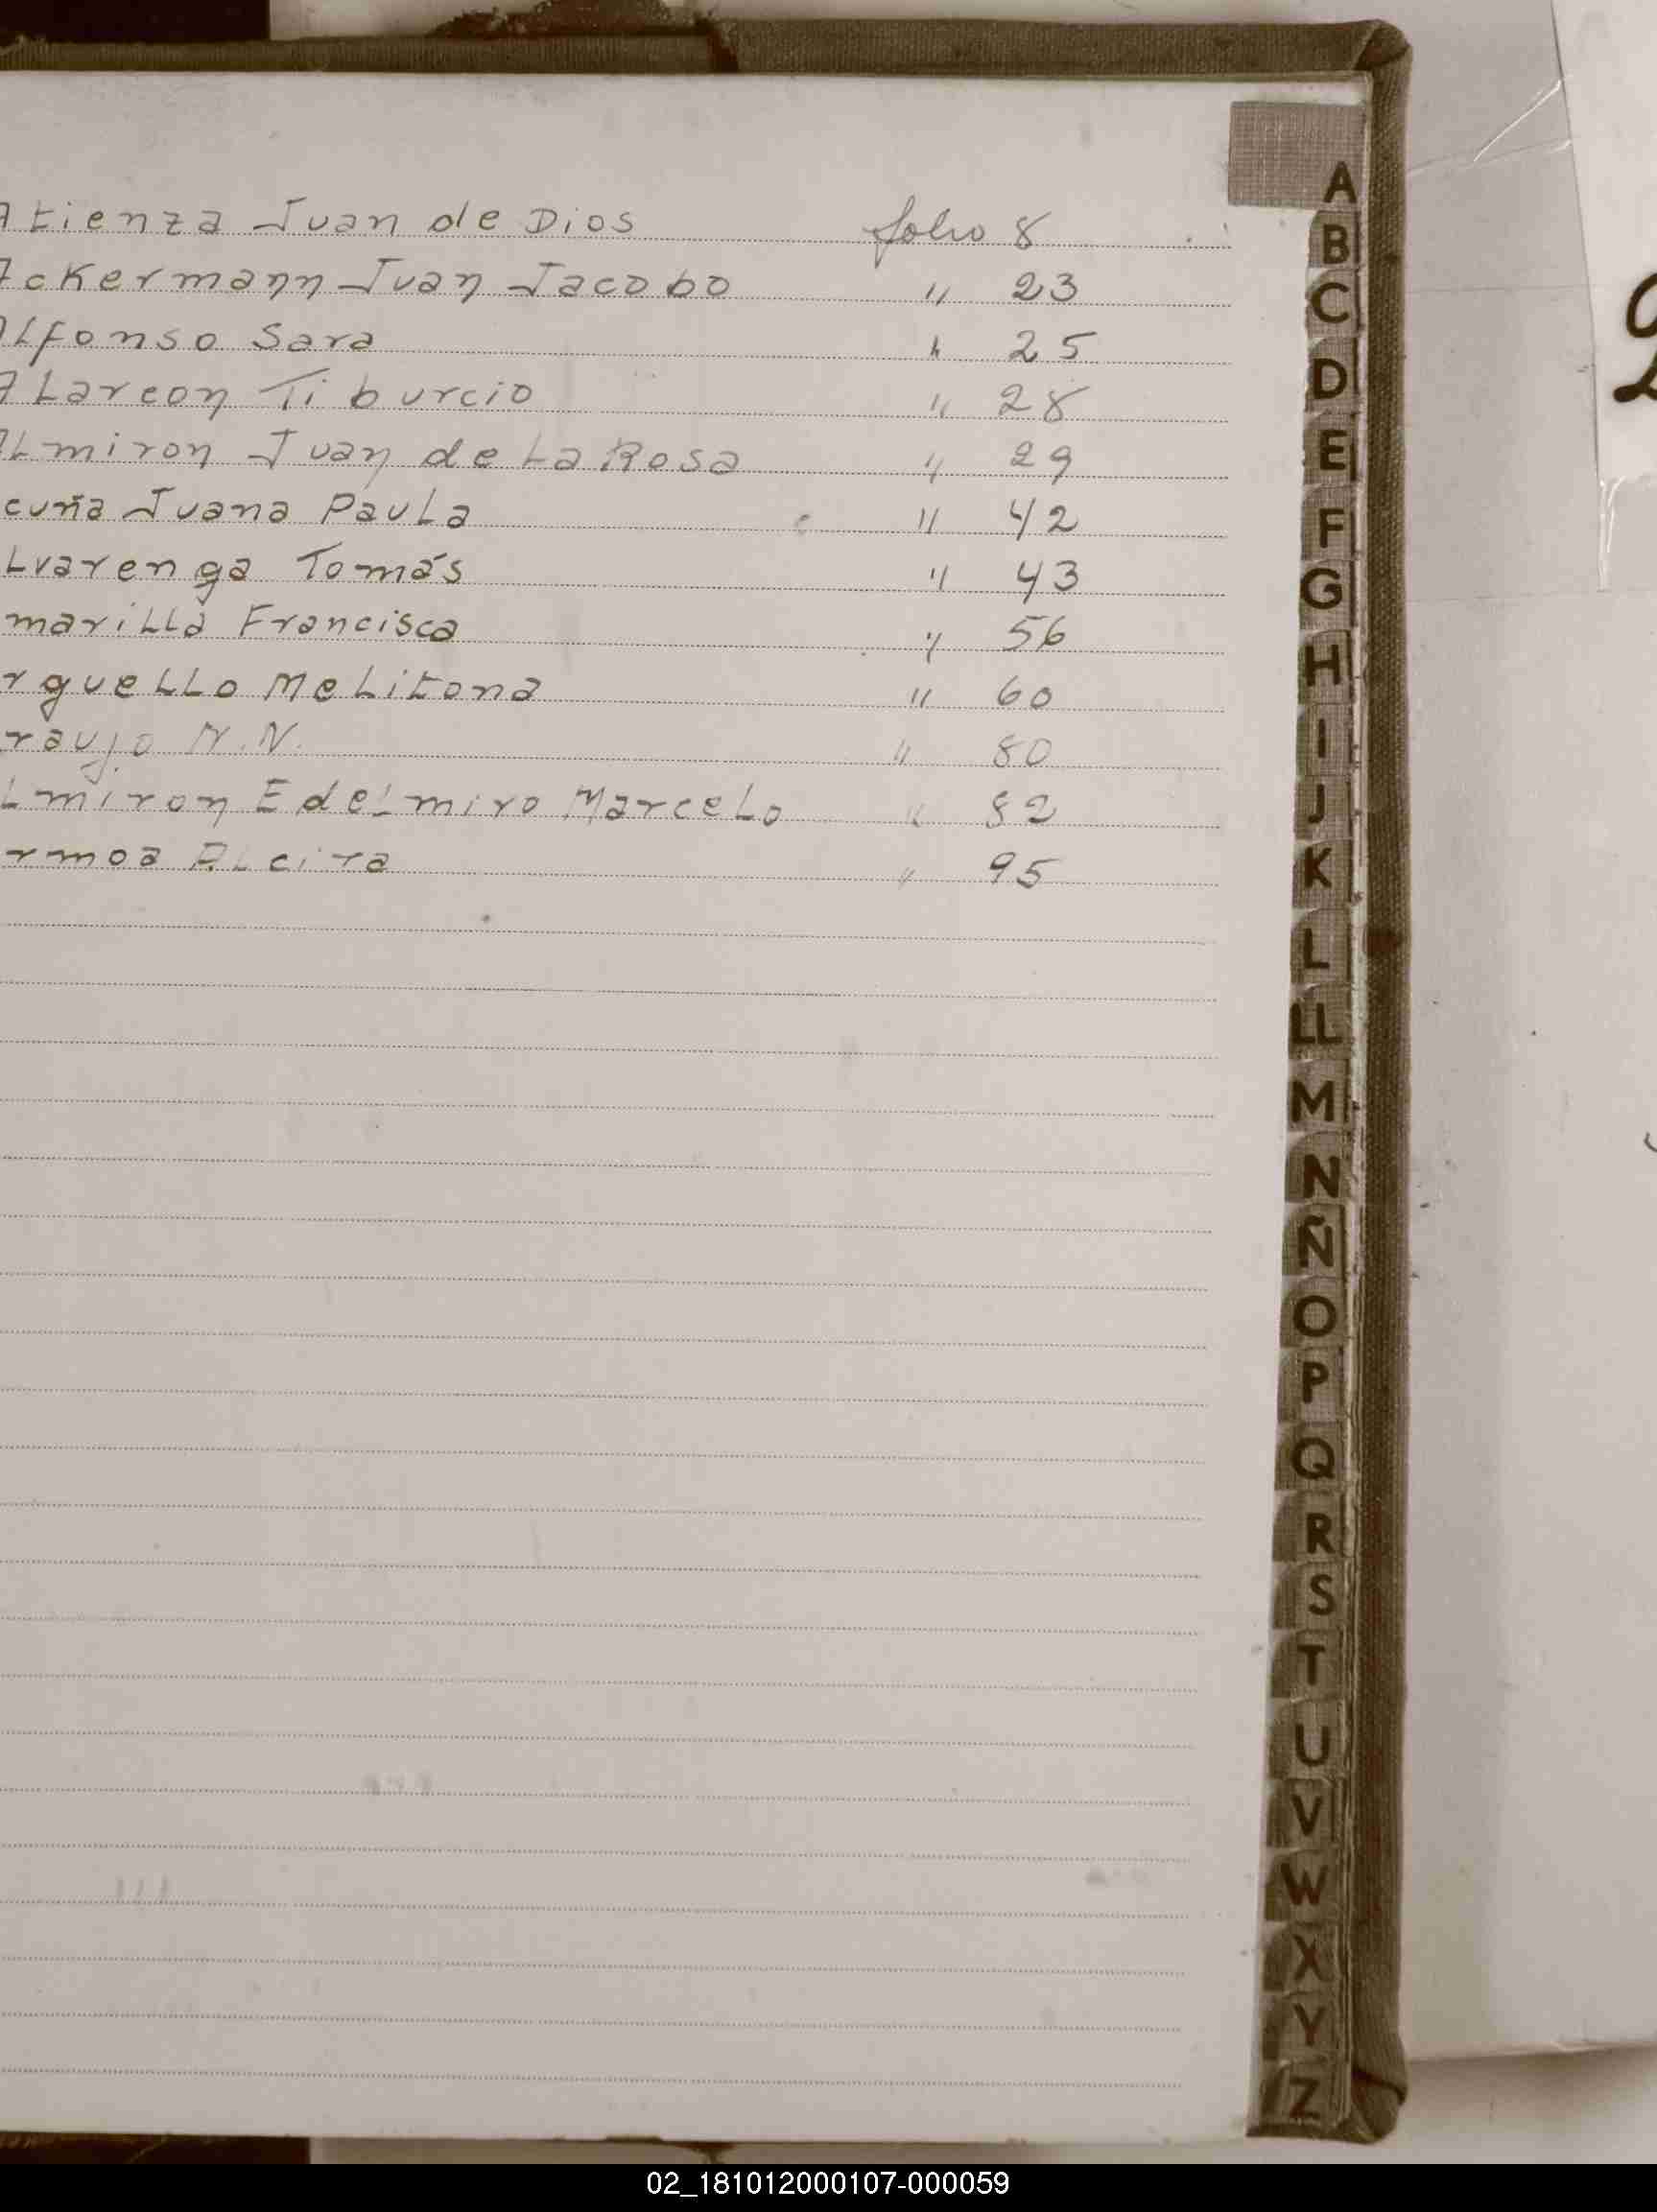 Atienza Juan de Dios folio 8
Ackermann Juan Jacobo " 23
Alfonso Sara " 25
ALarcon Tiburcio " 28
ALmiron Juan de La Rosa " 29
cuña Juana PauLa " 42
Lvarenga Tomás " 43
mariLLa Francisca " 56
rgueLLo MeLitona " 60
raujo N.N. " 80
Lmiron EdeLmiro MarceLo " 82
rmoa ALcira " 95
A
B
C
D
E
F
G
H
I
J
K
L
LL
M
N
Ñ
O
P
Q
R
S
T
U
V
W
X
Y
Z
02_181012000107-000059